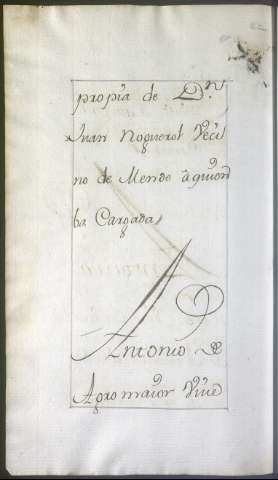 propia de Dn
Juan Noguerol Veci
no de Mende aquien
ba Cargada,
Antonio de
Agromaior Vive